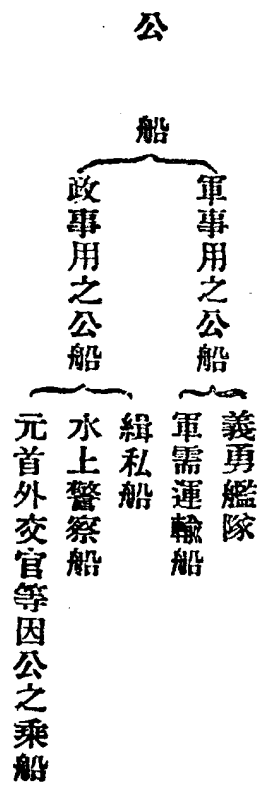 公船
軍事用之公船
義勇艦隊
軍需運輸船
政事用之公船
緝私船
水上警察船
元首外交官等因公之乘船